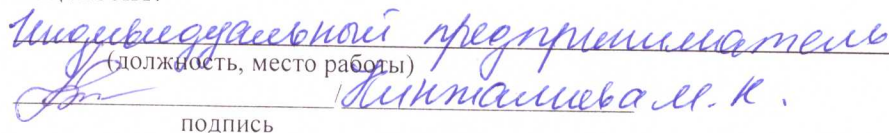 Индивидуальный предприниматель
(должность, место работы)
/ Нинжалиева М. К.
подпись